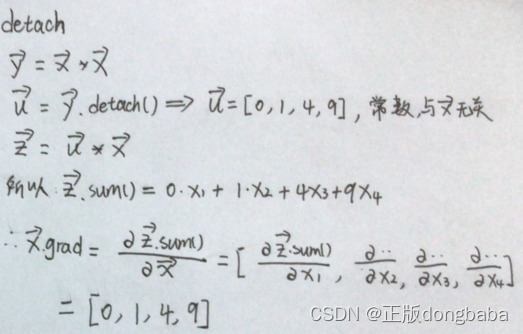 detach
y⃗ = x⃗ * x⃗
u⃗ = y⃗.detach() ⇒ u⃗ = [0, 1, 4, 9], 常数, 与x⃗无关
z⃗ = u⃗ * x⃗
所以: z⃗.sum() = 0·x₁ + 1·x₂ + 4x₃ + 9x₄
∴ x⃗.grad = ∂z⃗.sum()/∂x⃗ = [∂z⃗.sum()/∂x₁, ∂··/∂x₂, ∂··/∂x₃, ∂···/∂x₄]
= [0, 1, 4, 9]
CSDN @正版dongbaba